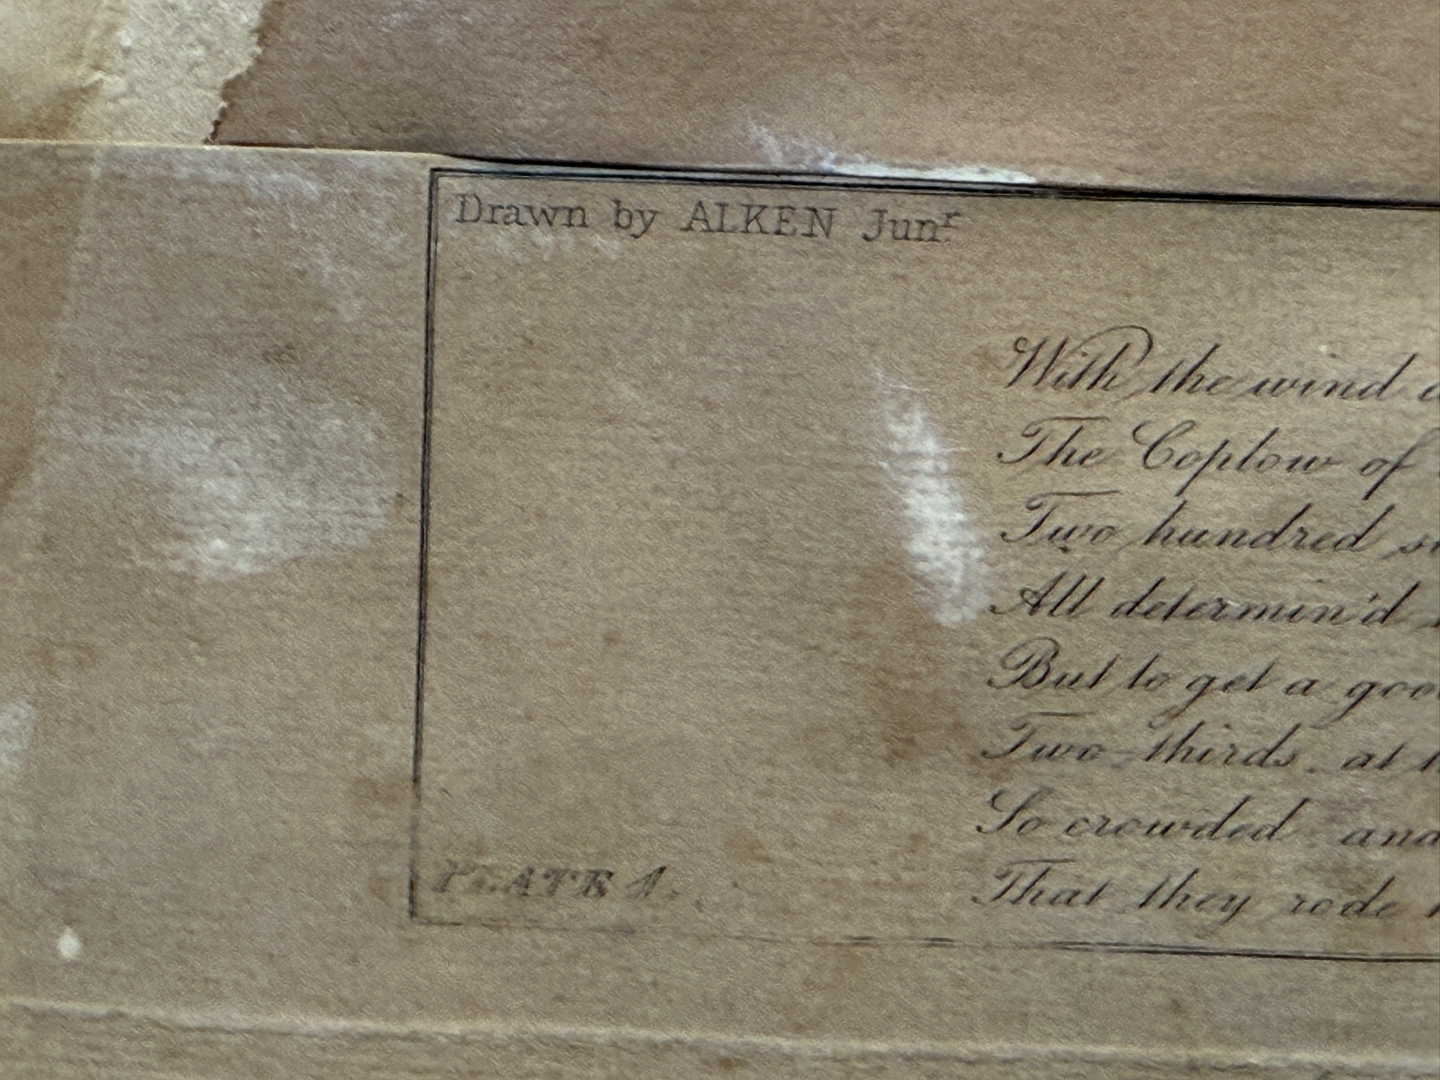 Drawn by ALKEN Junr
With the wind
The Coplow of
Two hundred
All determin'd
But to get a
Two-thirds at
So crowded and
That they rode
PLATE 1.